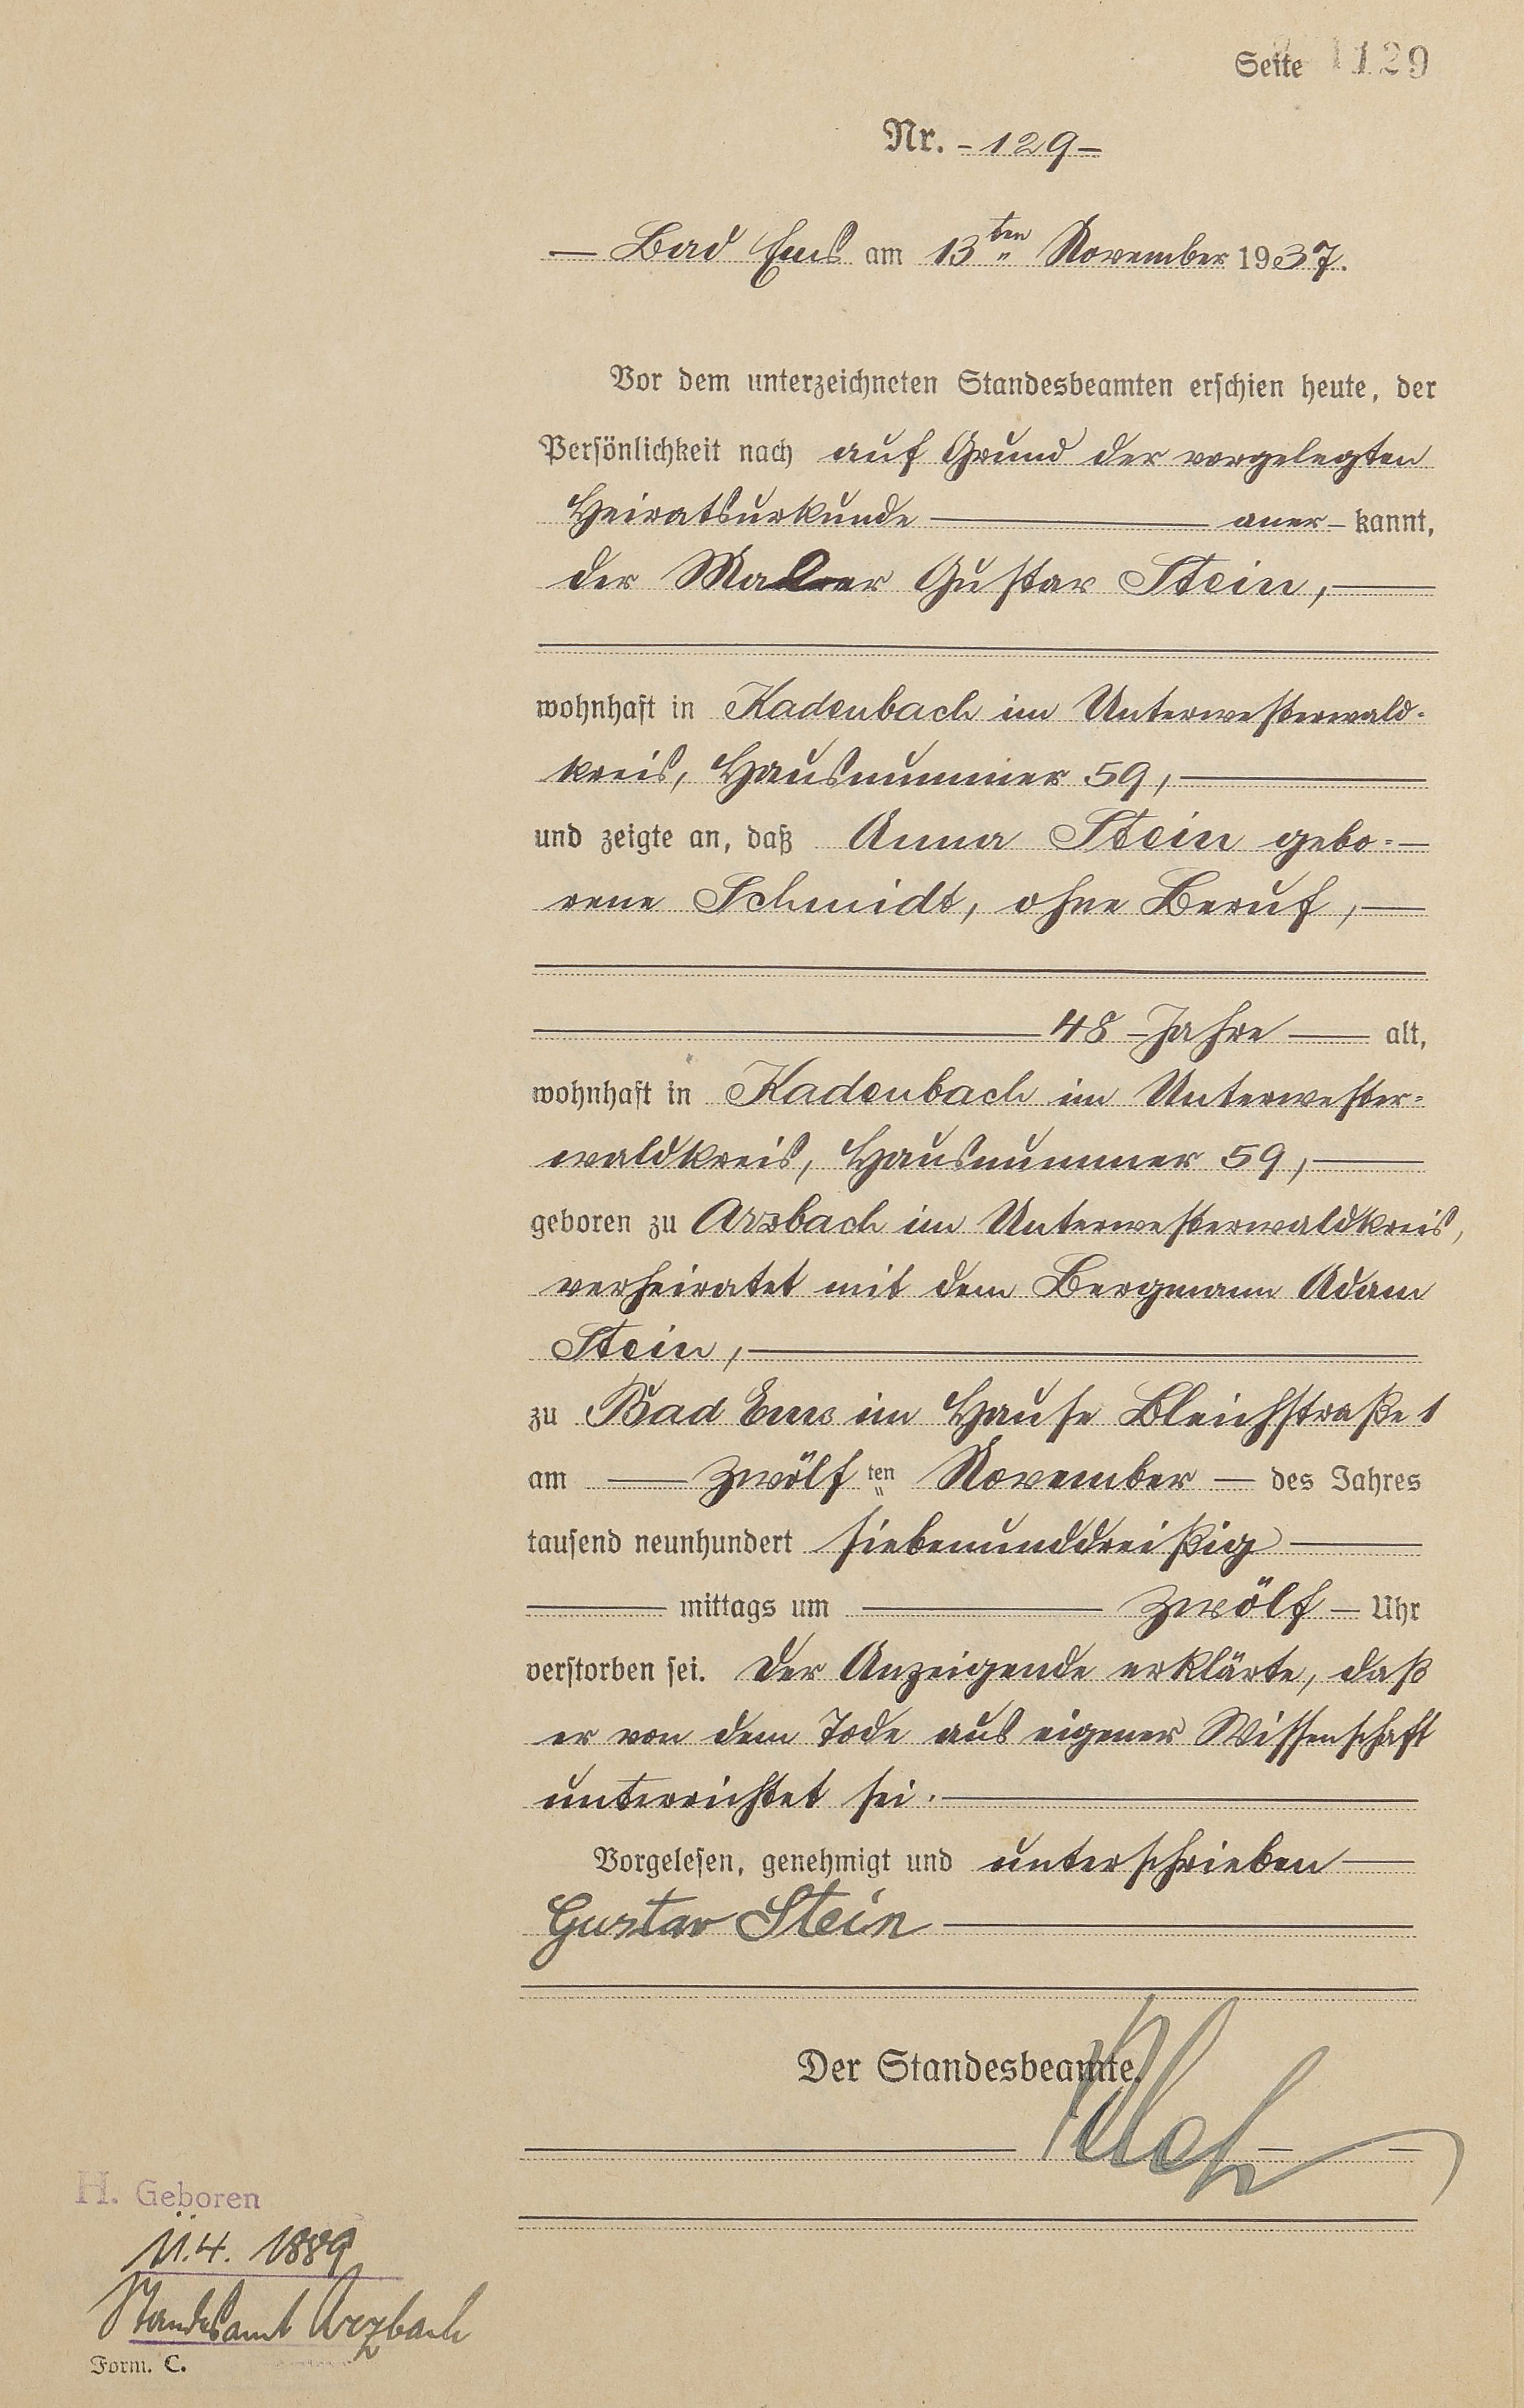 Seite 129
Nr. - 129 -
— Bad Ems am 13ten November 1937.
Vor dem unterzeichneten Standesbeamten erschien heute, der
Persönlichkeit nach auf Grund der vorgelegten
Heiratsurkunde — aner- kannt,
der Maler Gustav Stein, —
wohnhaft in Kadenbach im Unterwesterwald-
kreis, Hausnummer 59, —
und zeigte an, daß Anna Stein gebo= —
rene Schmidt, ohne Beruf, —
— 48 - Jahre — alt,
wohnhaft in Kadenbach im Unterwester=
waldkreis, Hausnummer 59, —
geboren zu Arzbach im Unterwesterwaldkreis,
verheiratet mit dem Bergmann Adam
Stein, —
zu Bad Ems im Hause Bleichstraße 1
am — zwölf ten November — des Jahres
tausend neunhundert siebenunddreißig —
— mittags um — zwölf — Uhr
verstorben sei. Der Anzeigende erklärte, daß
er von dem Tode aus eigener Wissenschaft
unterrichtet sei. —
Vorgelesen, genehmigt und unterschrieben —
Gustav Stein —
Der Standesbeamte.
H. Geboren
11.4. 1889
Standesamt Arzbach
Form. C.